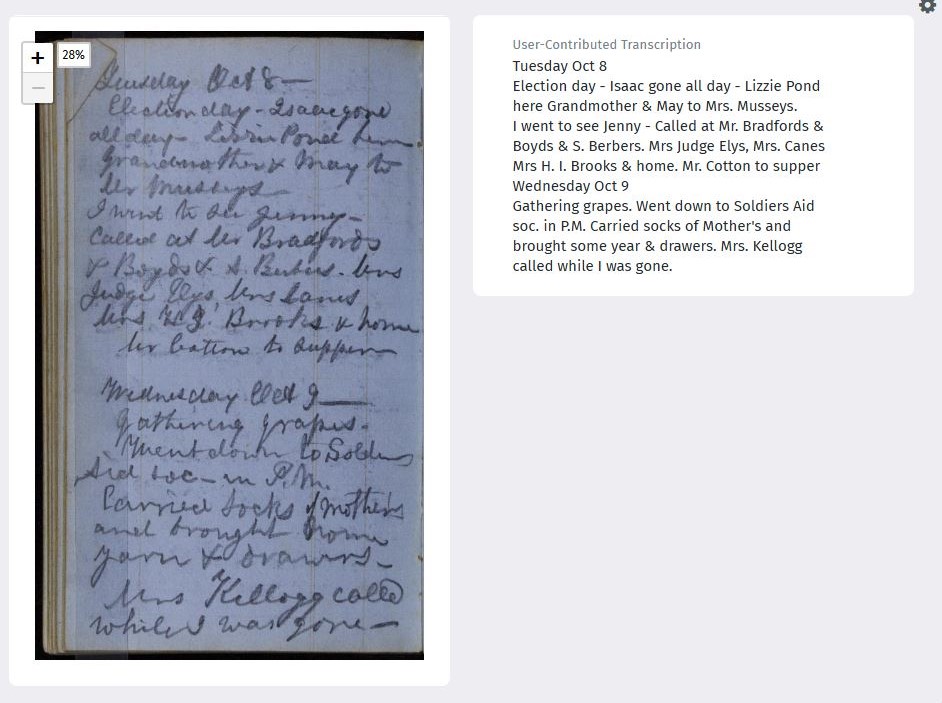 28%
Tuesday Oct 8 —
Election day - Isaac gone
all day - Lizzie Pond here -
Grandmother & May to
Mr Musseys —
I went to see Jenny -
Called at Mr Bradfords
& Boyds & S. Berbers. Mrs
Judge Elys, Mrs Canes
Mrs H. I. Brooks & home
Mr Cotton to supper
Wednesday Oct 9 —
Gathering grapes -
Went down to Soldiers
Aid soc - in P.M.
Carried socks of Mothers
and brought home
yarn & drawers -
Mrs Kellogg called
while I was gone —
User-Contributed Transcription
Tuesday Oct 8
Election day - Isaac gone all day - Lizzie Pond
here Grandmother & May to Mrs. Musseys.
I went to see Jenny - Called at Mr. Bradfords &
Boyds & S. Berbers. Mrs Judge Elys, Mrs. Canes
Mrs H. I. Brooks & home. Mr. Cotton to supper
Wednesday Oct 9
Gathering grapes. Went down to Soldiers Aid
soc. in P.M. Carried socks of Mother's and
brought some year & drawers. Mrs. Kellogg
called while I was gone.